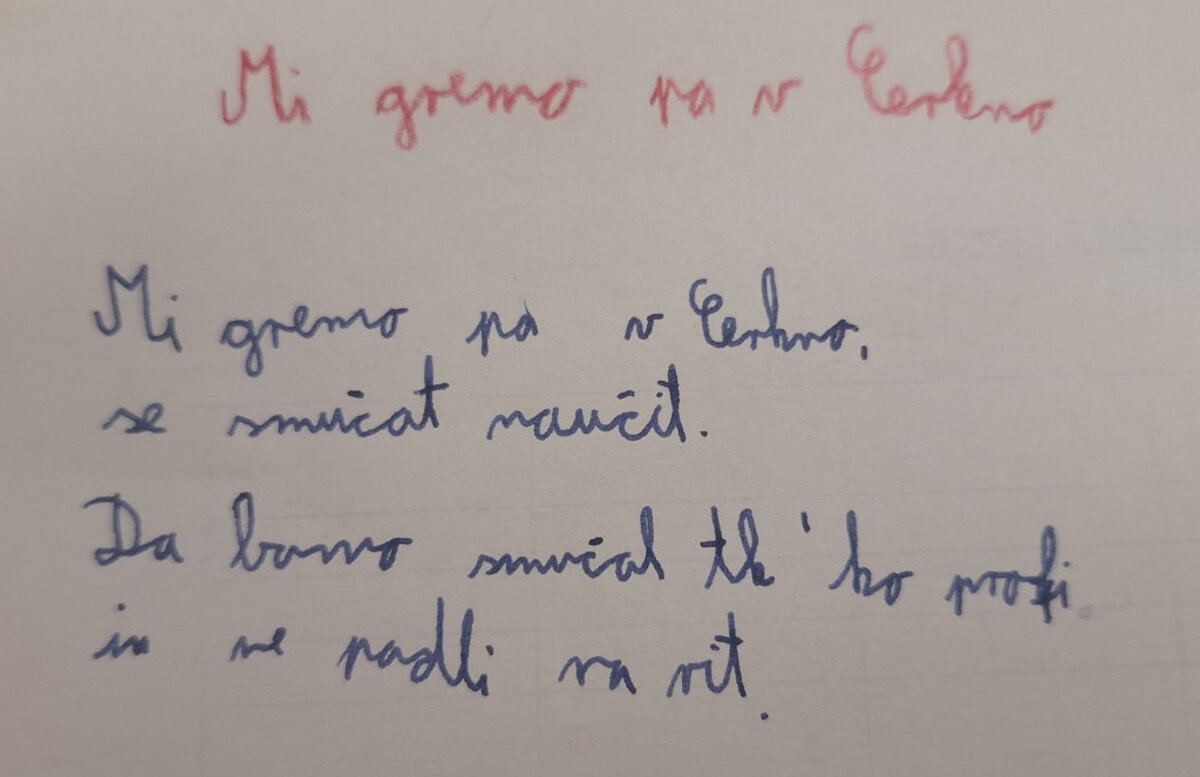 Mi gremo pa v Cerkno
Mi gremo pa v Cerkno,
se smučat naučit.
Da bomo smučal tk ' ko profi
in ne padli na rit.